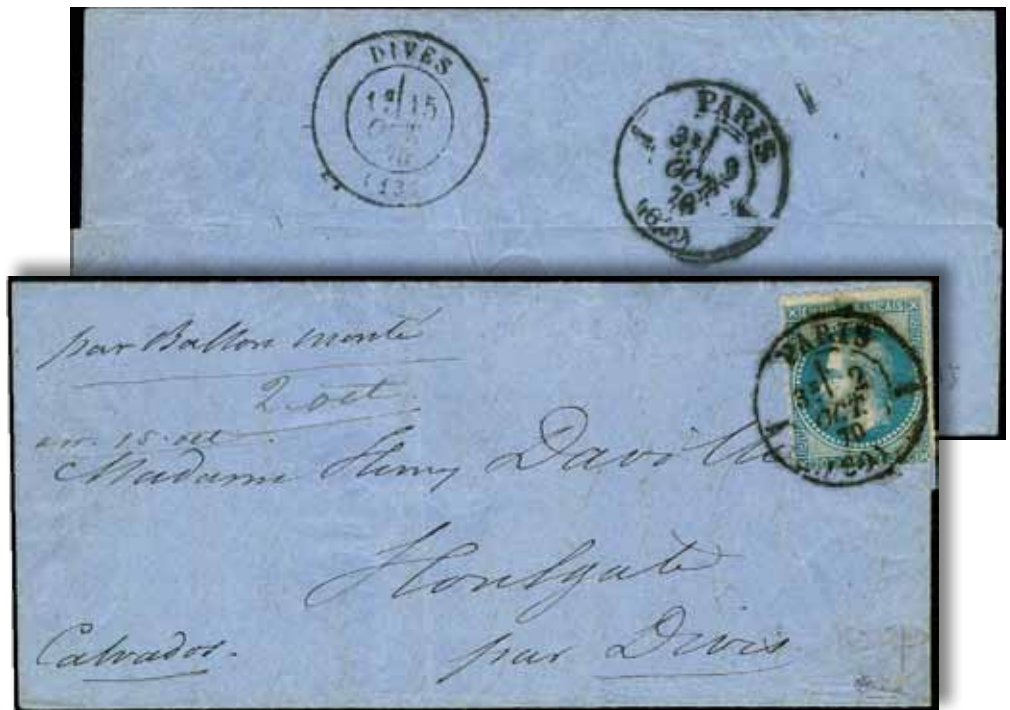 DIVES
15
OCT
70
(13
PARIS
1
3E 9
OCT
70
par Ballon monté
2 oct.
arr. 15 oct.
PARIS
2
OCT.
70
Madame Henry Daville
Houlgate
Calvados. par Dives